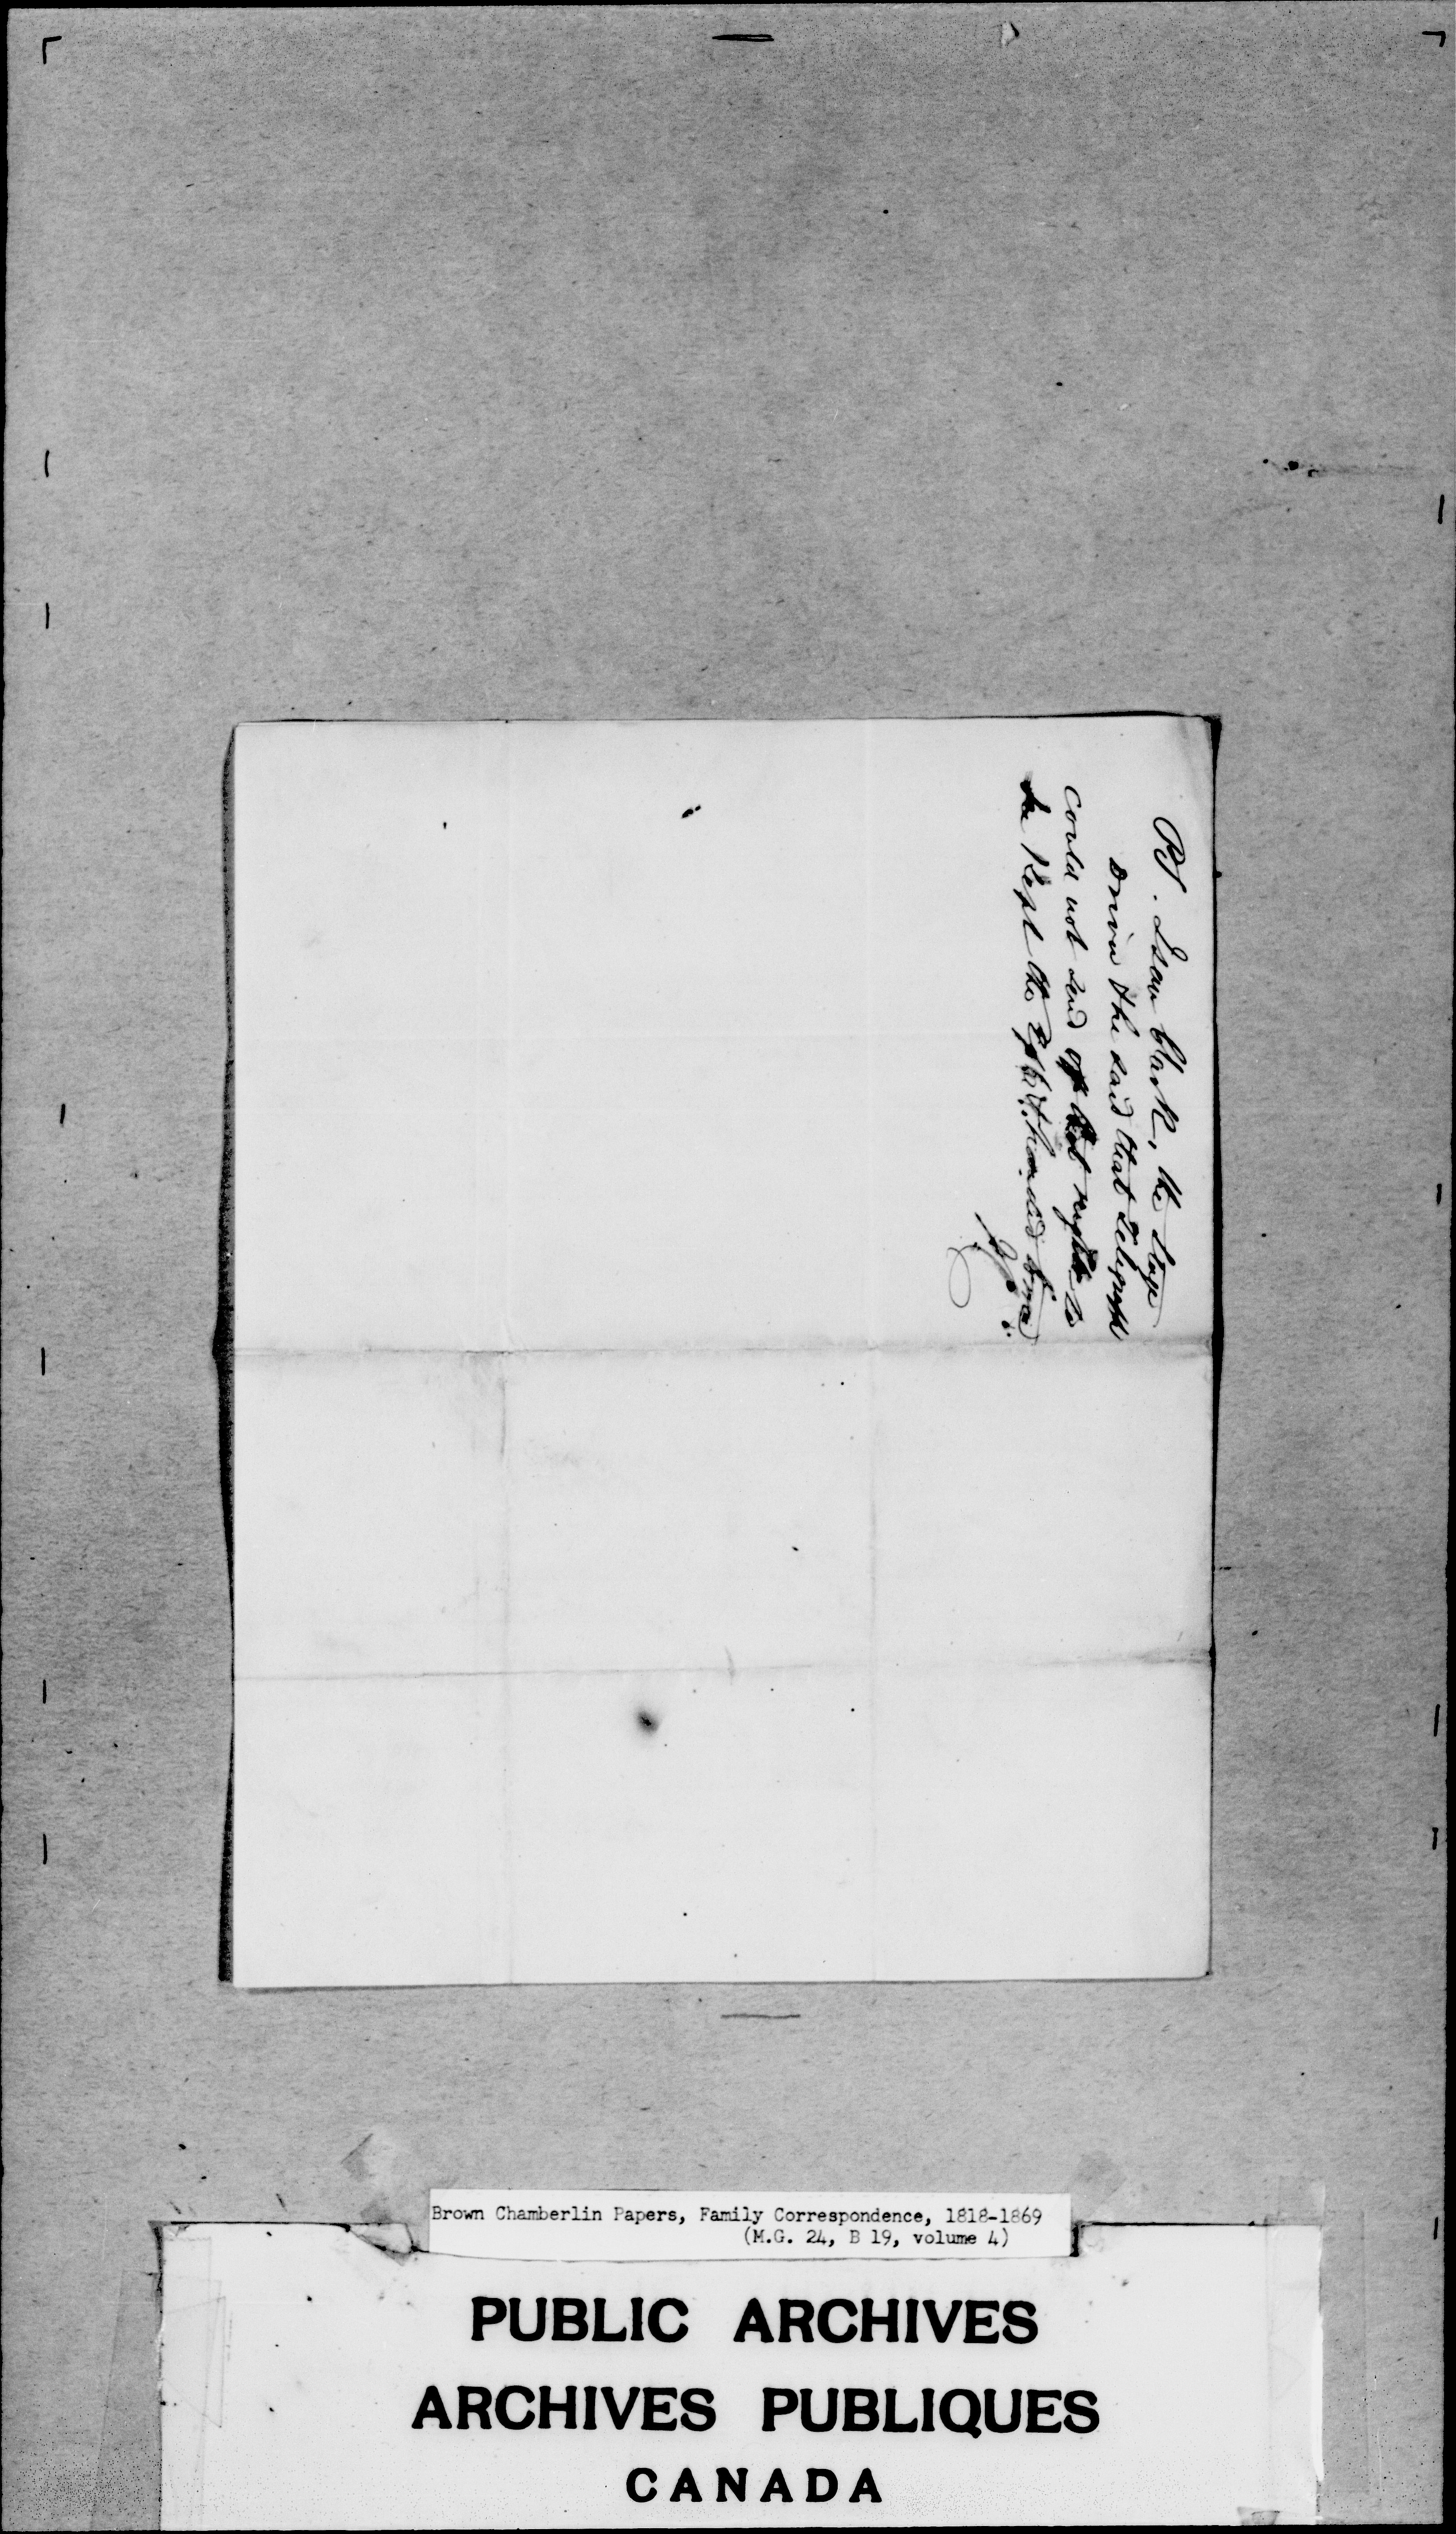 PS. I saw Clark, the Stage
Driver & he said that Telegraph
could not send off that night so
he kept the & handed
Brown Chamberlin Papers, Family Correspondence, 1818-1869
(M.G. 24, B 19, volume 4)
PUBLIC ARCHIVES
ARCHIVES PUBLIQUES
CANADA